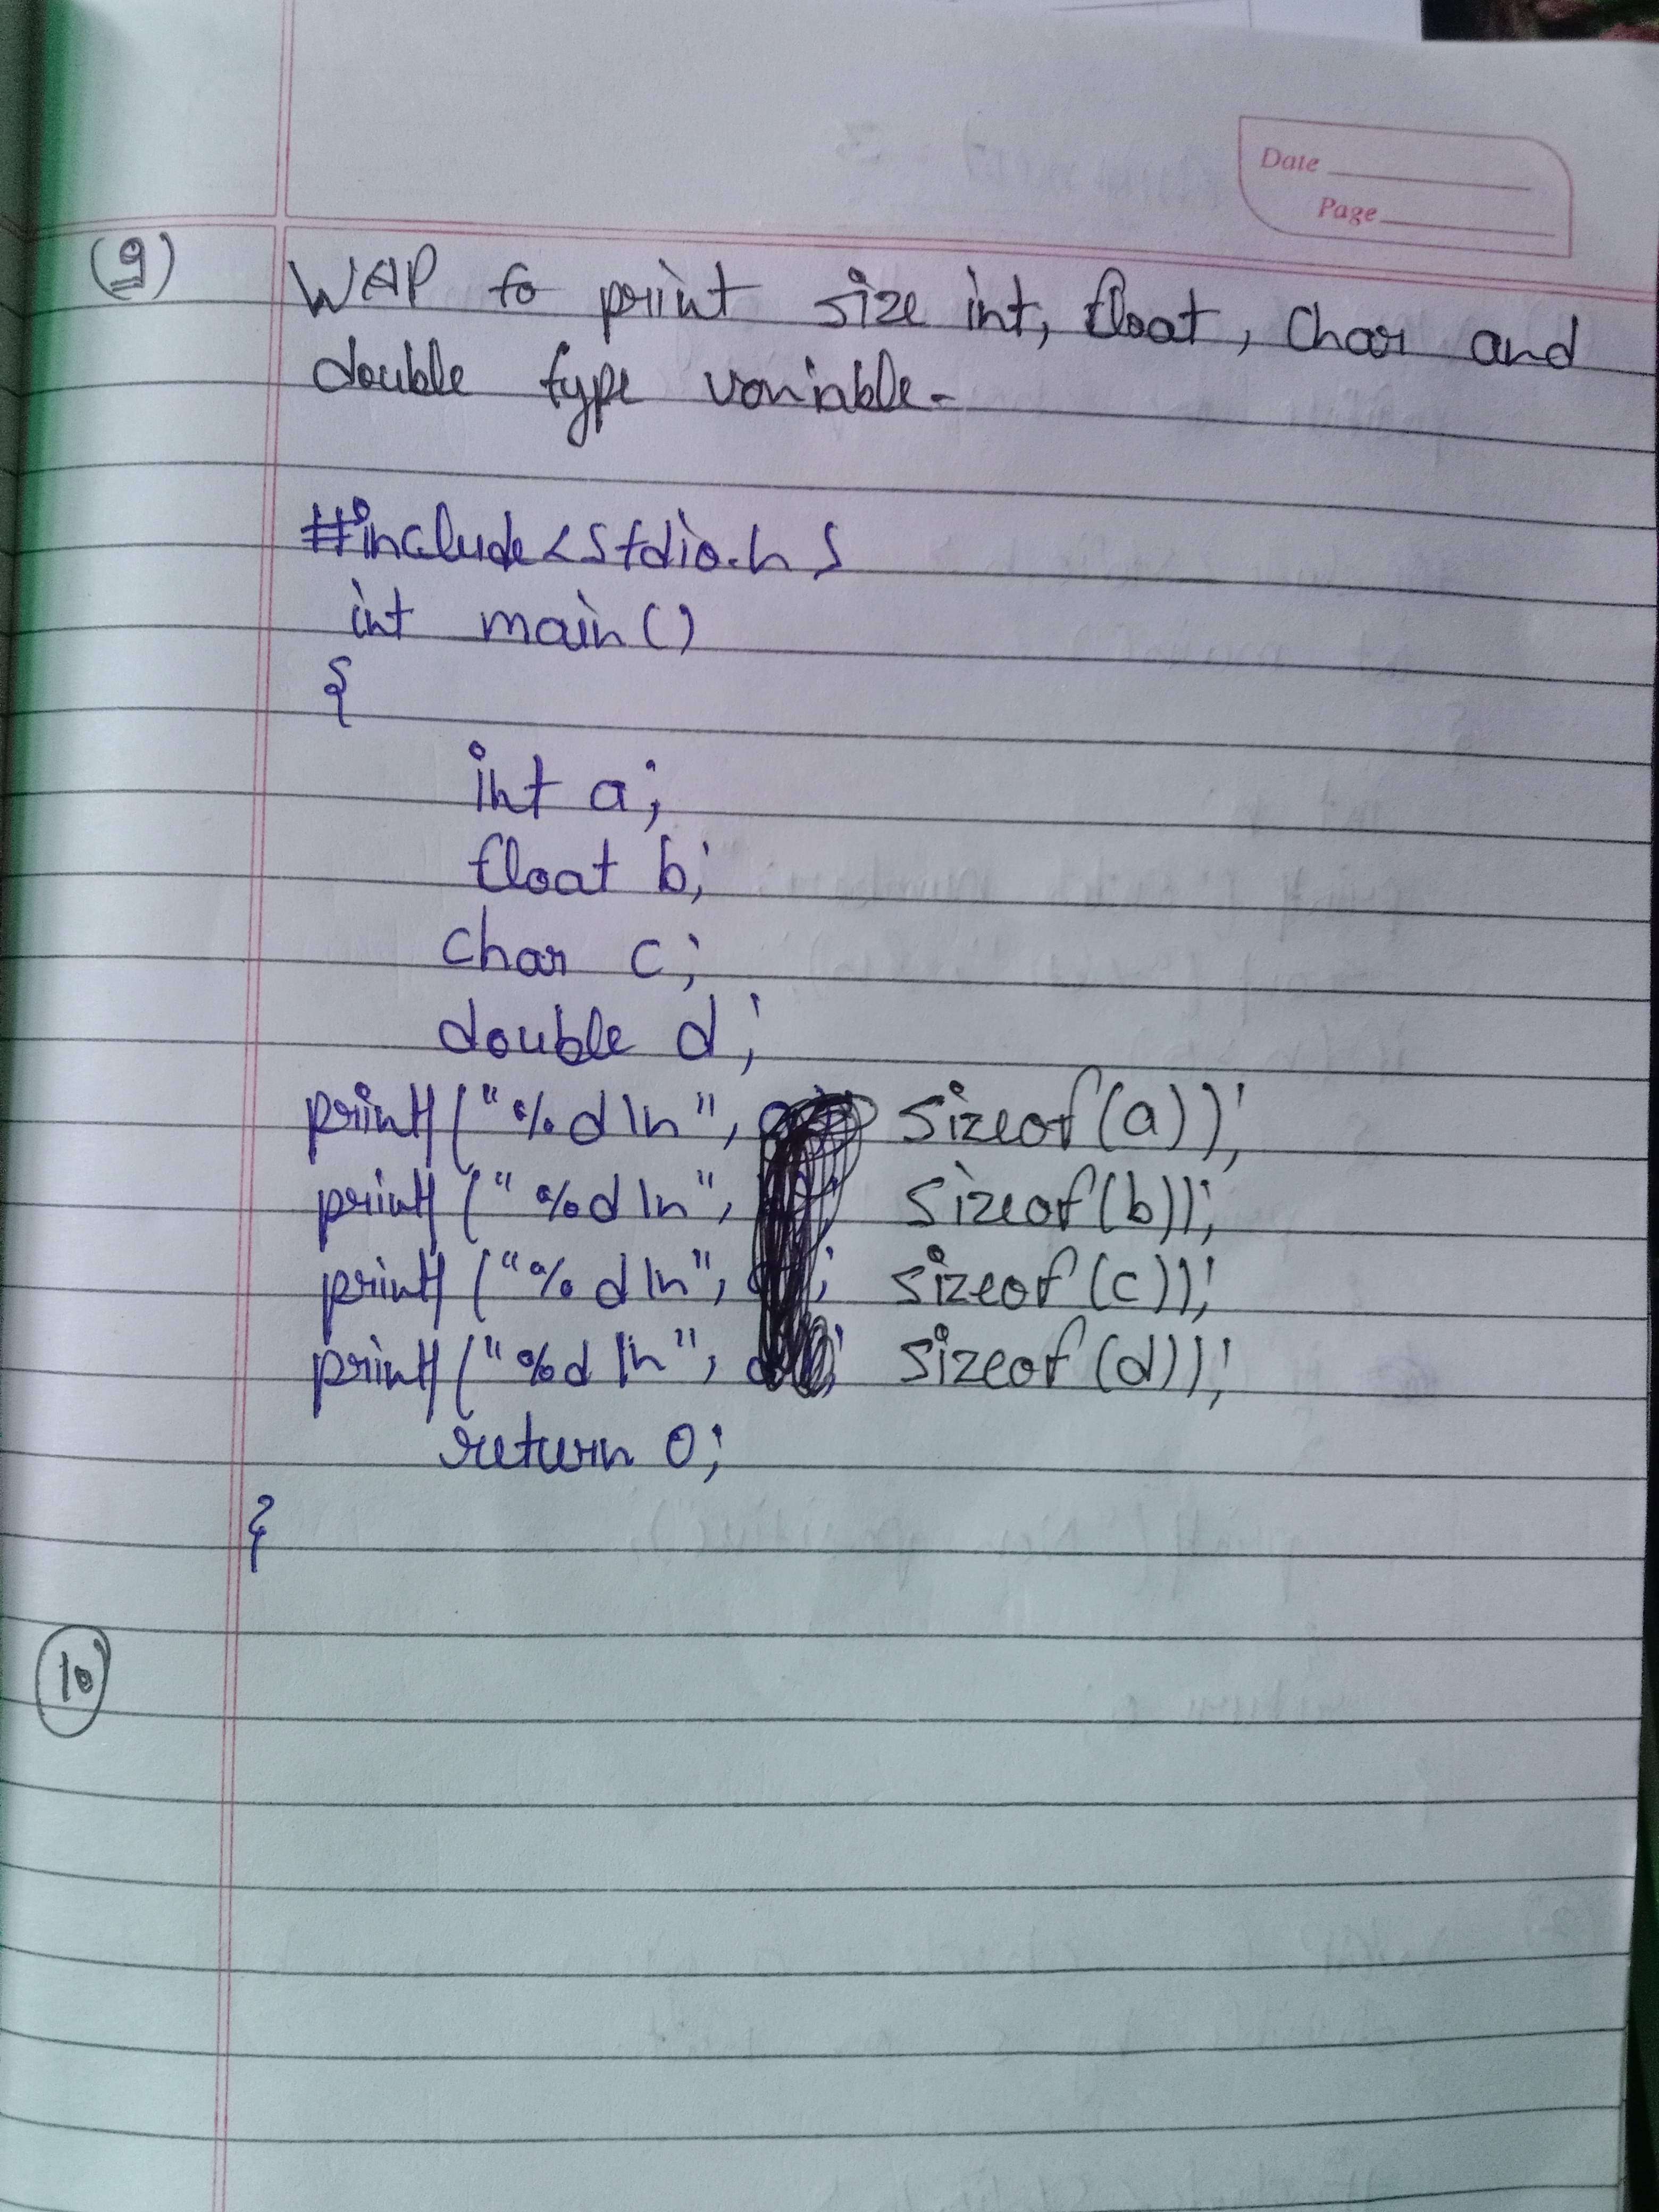 Date
Page
(9) WAP to print size int, float, char and
double type variable.
#include<stdio.h>
int main()
{
int a;
float b;
char c;
double d;
printf("%d\n", sizeof(a));
printf("%d\n", sizeof(b));
printf("%d\n", sizeof(c));
printf("%d\n", sizeof(d));
return 0;
}
10